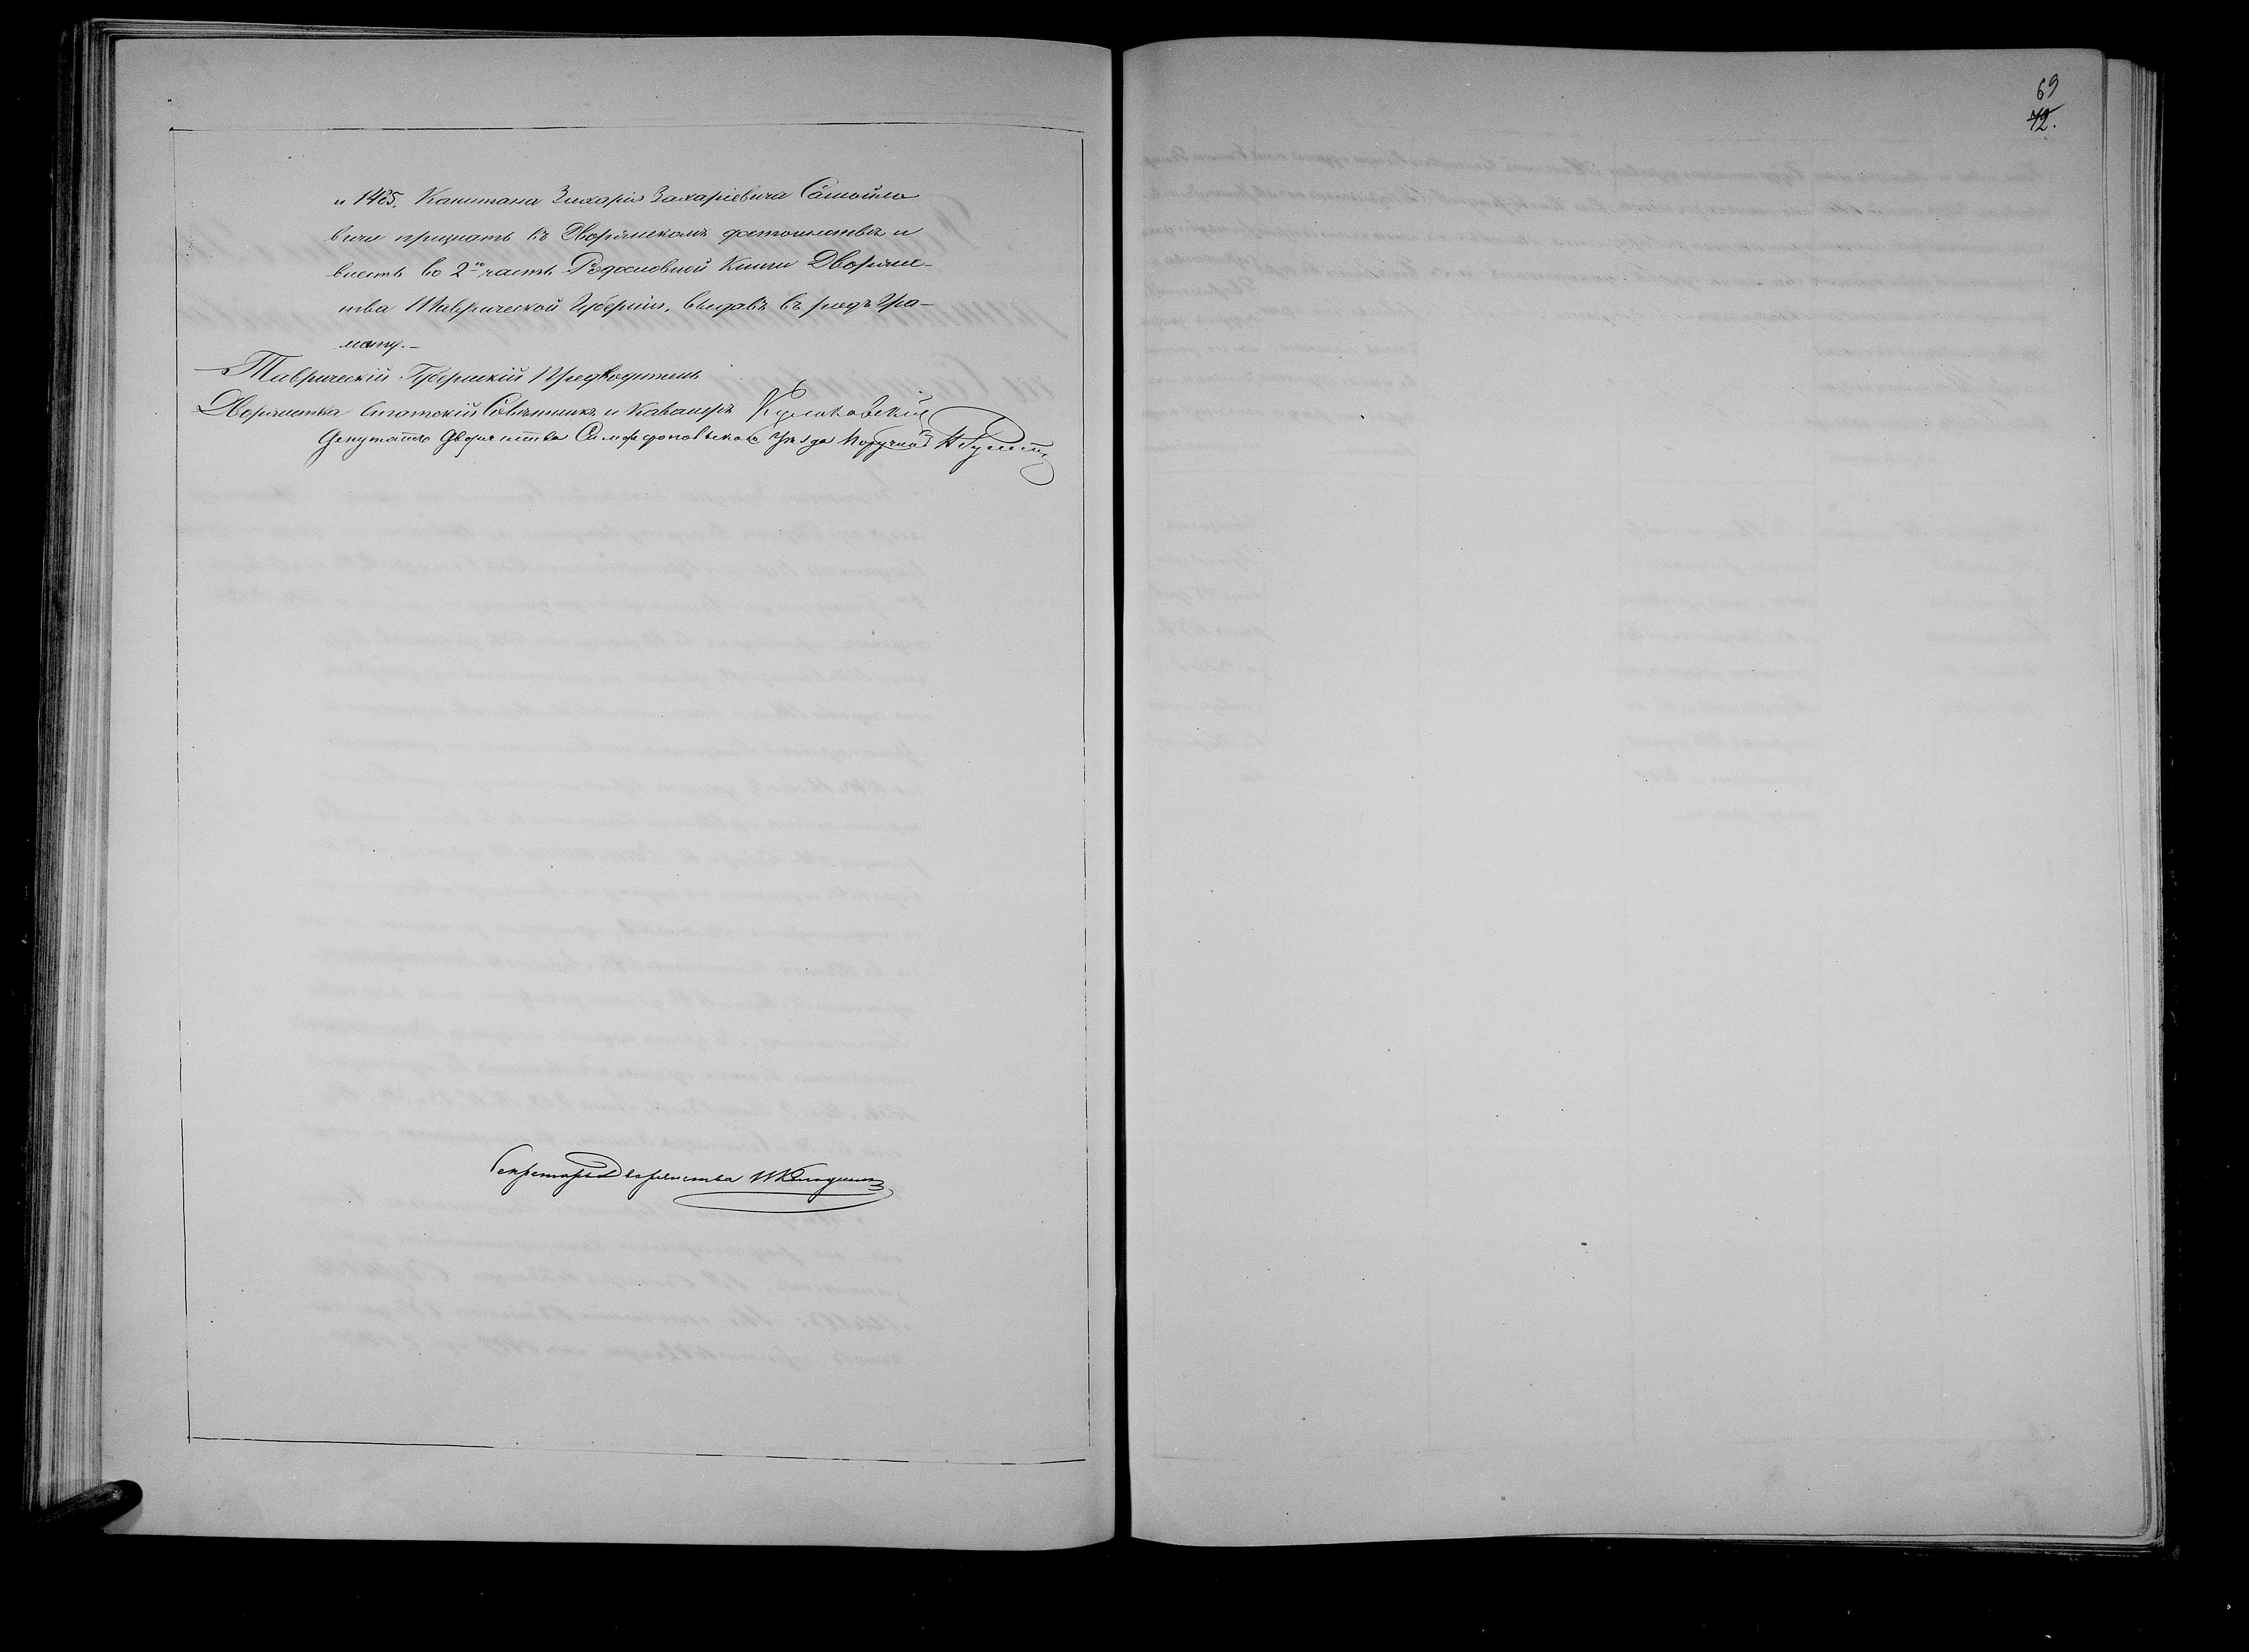 69
72.
и 1465. Капитана Захарія Захаріевича Самойло
вича признать въ Дворянскомъ достоинствѣ и
внесть во 2ю часть Родословной Книги Дворянс-
тва Таврической Губерніи, выдавъ въ родъ Гра-
моту.–
Таврическій Губернскій Предводитель
Дворянства Статскій Совѣтникъ и Кавалеръ
Депутатъ Дворянства Симферопольскаго Уѣзда Поручикъ
Секретарь Дворянства